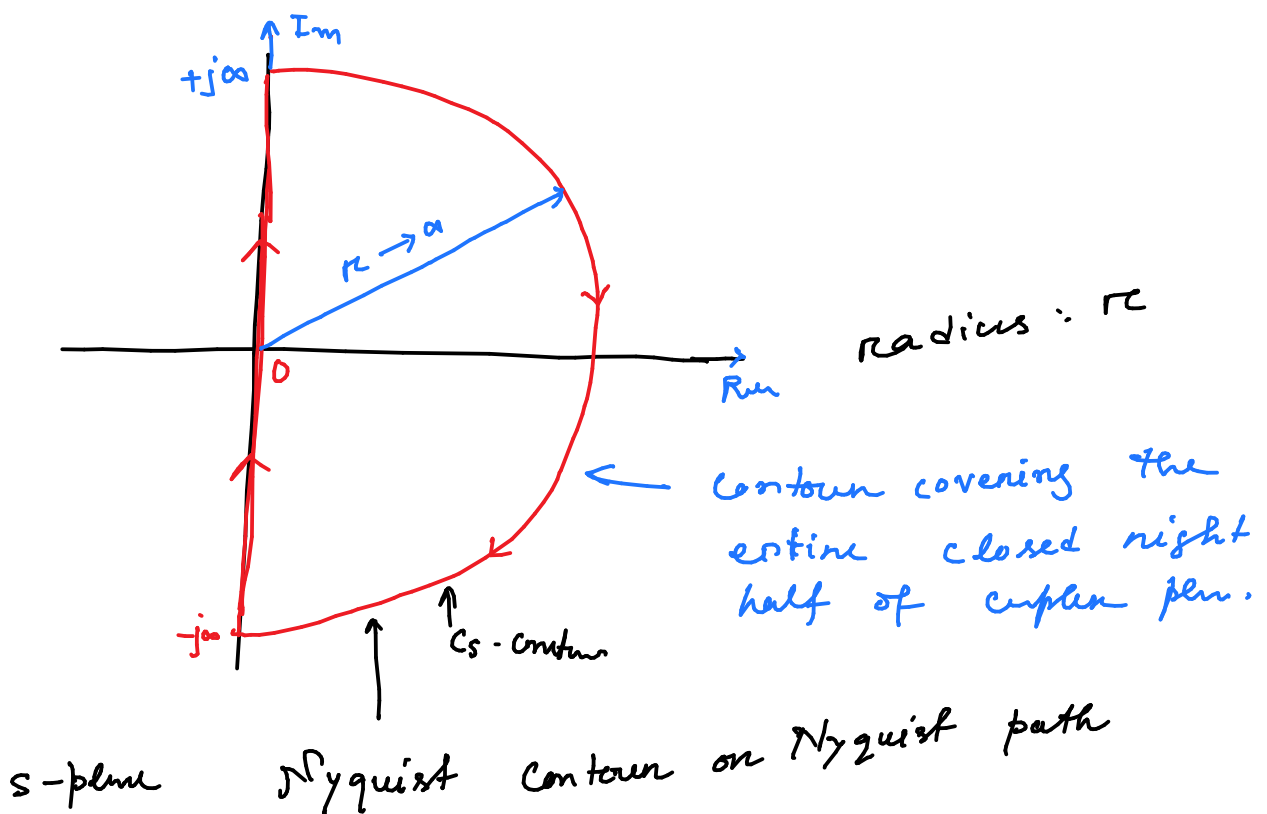 Im
+j∞
r → ∞
0
Re
radius : r
contour covering the
entire closed right
half of complex plane.
-j∞
Cs - contour
s-plane Nyquist contour or Nyquist path